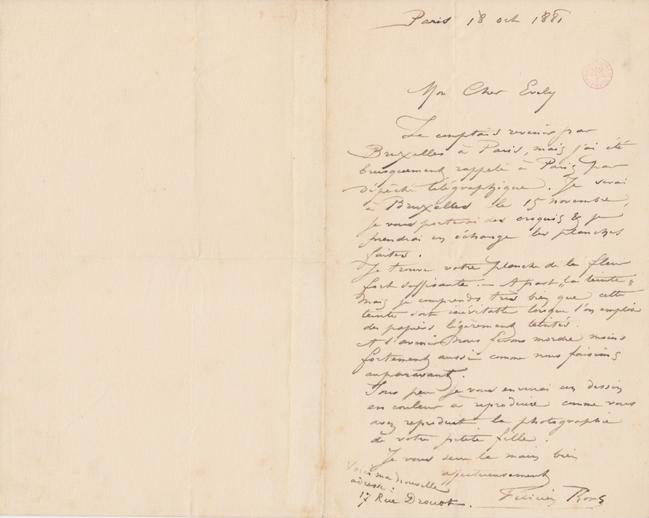 Paris 18 oct 1881
Mon Cher Evely
Je comptais revenir par
Bruxelles à Paris, mais j'ai été
brusquement rappelé à Paris par
dépêche télégraphique. Je serai
à Bruxelles le 15 novembre,
je vous porterai des croquis & je
prendrai en échange les planches
faites.
Je trouve votre planche de la fleur
fort suffisante. — A part „la teinte„
mais je comprends très bien que cette
teinte soit inévitable lorsque l'on emploie
des papiers légèrement teintés.
A l'avenir nous ferons mordre moins
fortement aussi comme nous faisions
auparavant.
Sous peu je vous enverrai un dessin
en couleur à reproduire comme vous
avez reproduit la photographie
de votre petite fille.
Je vous serre la main bien
affectueusement
Félicien Rops
Voici ma nouvelle
adresse:
17 Rue Drouot.